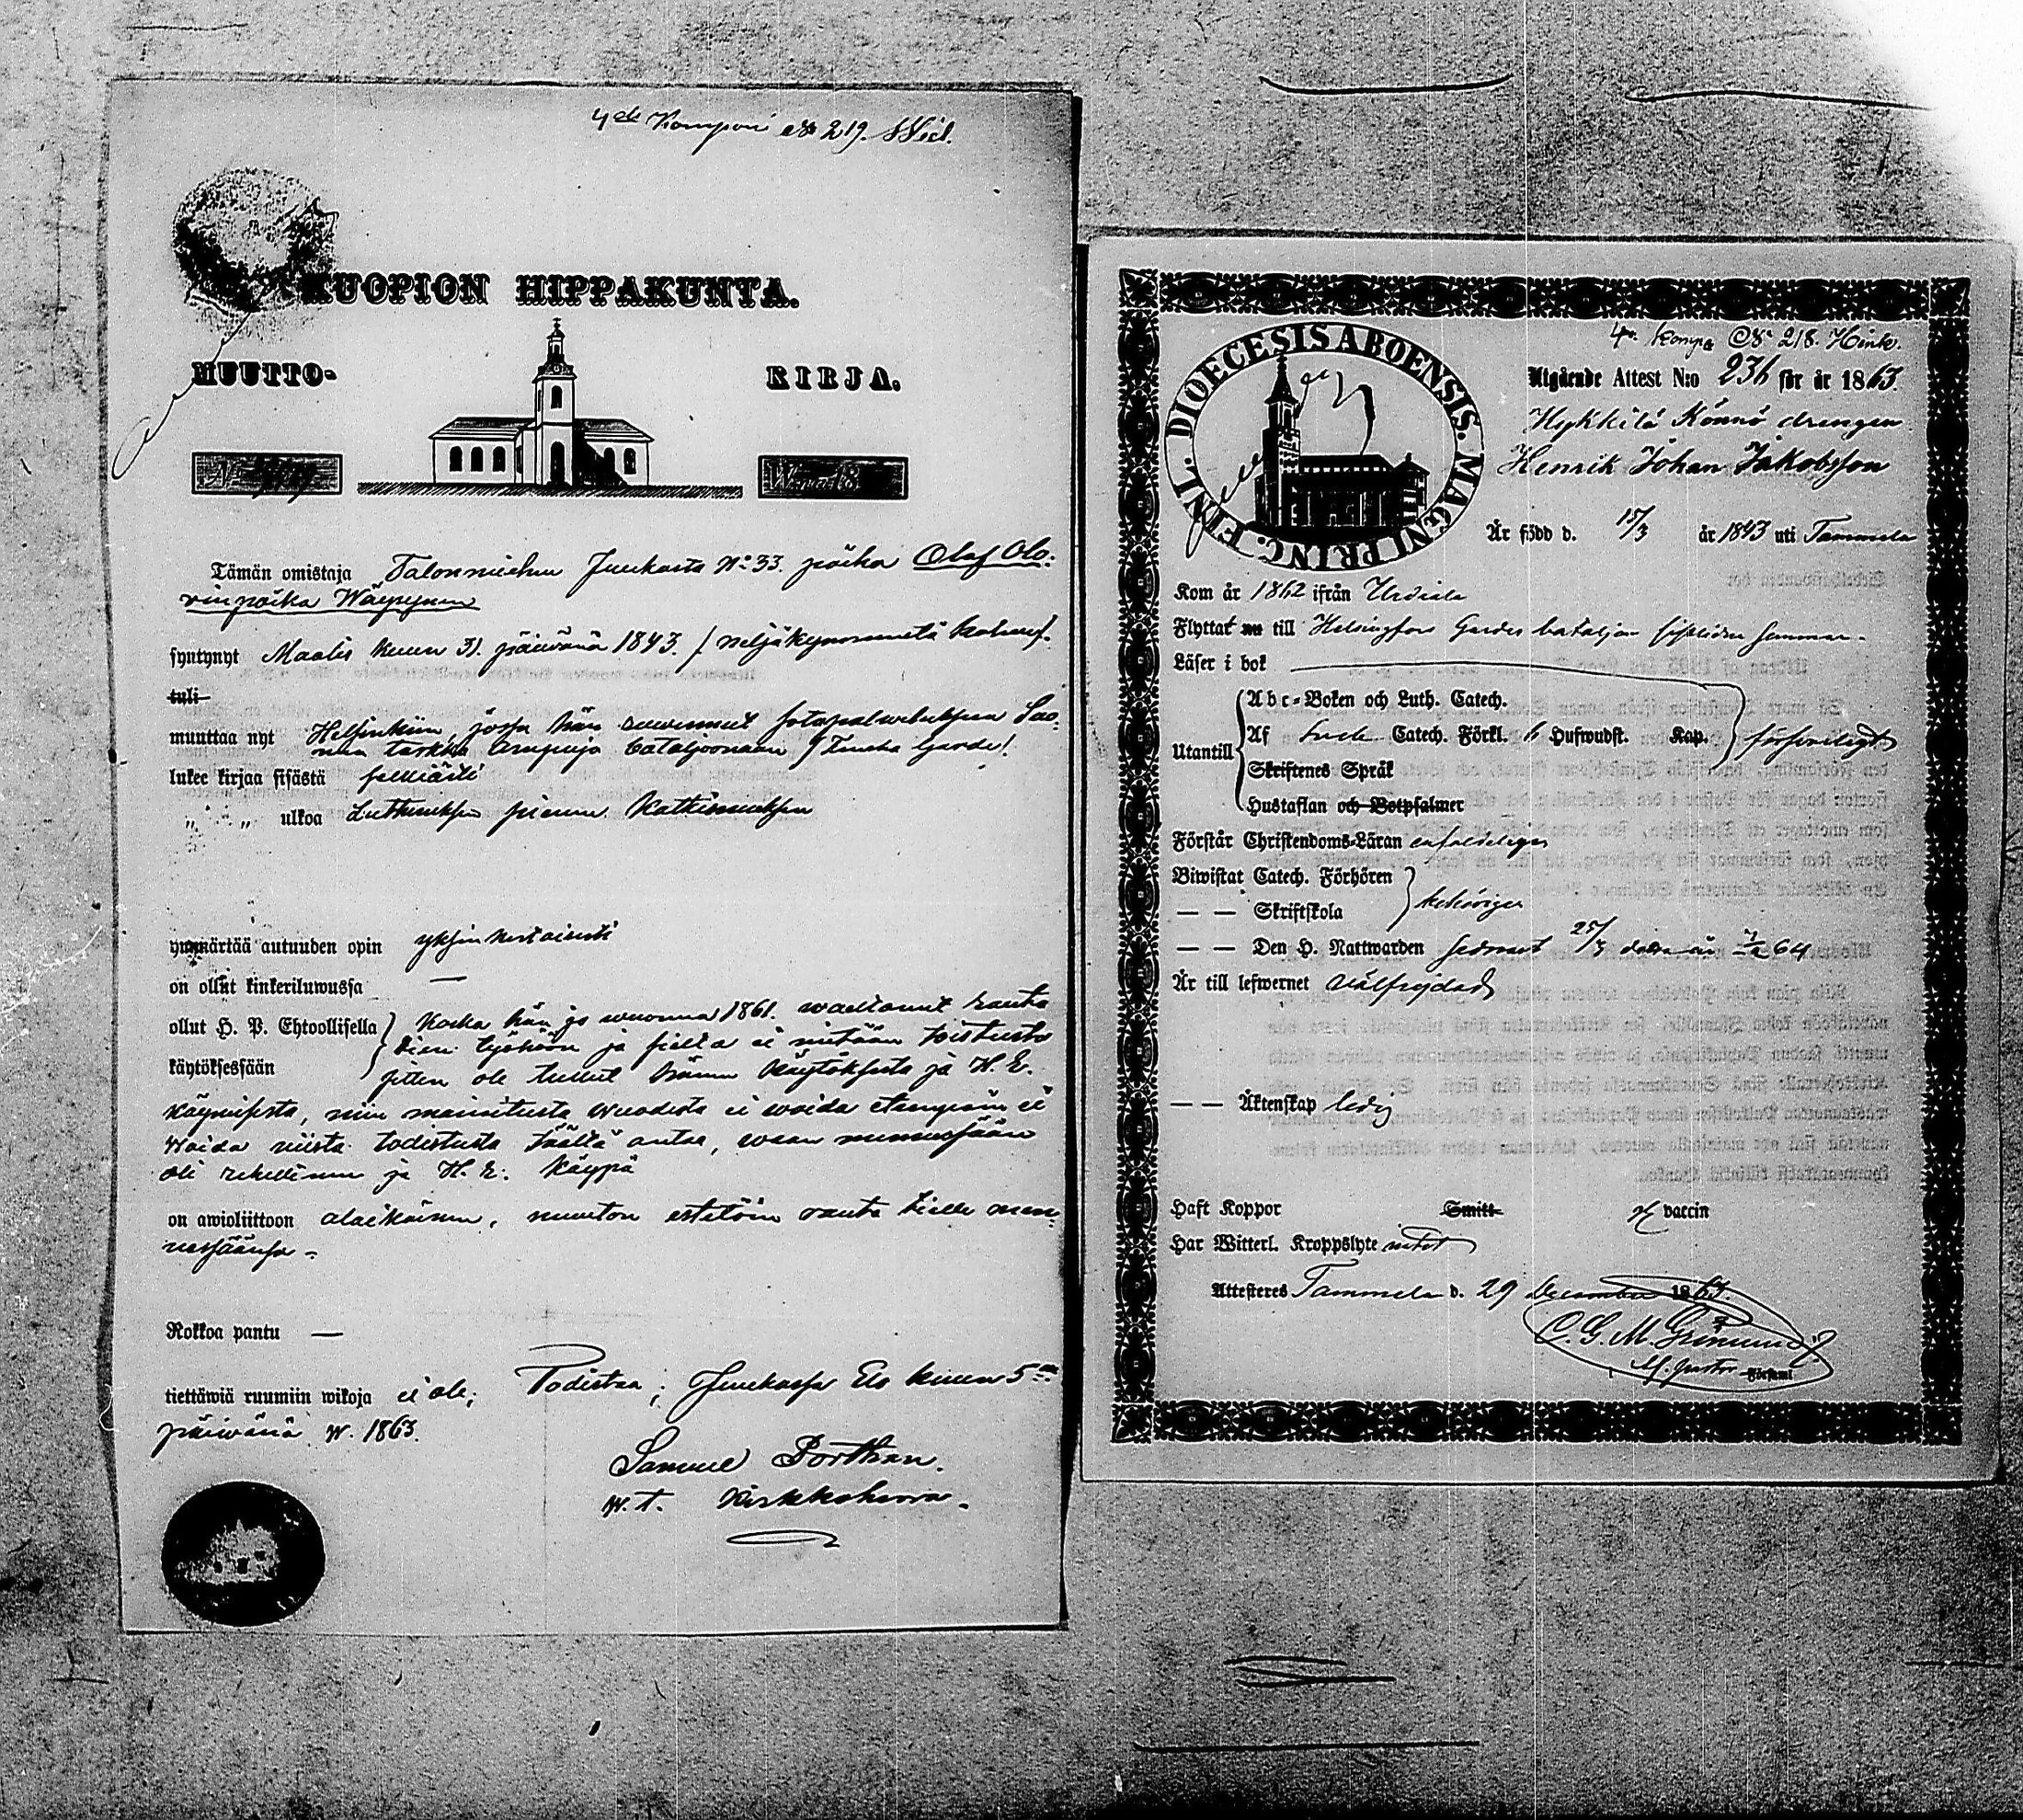 4de Kompani No 219.
KUOPION HIPPAKUNTA.
MUUTTO-
KIRJA.
Tämän omistaja Talonmiehen Juukasta No 33. poika Olaf Olo-
vinpoika Wäyrynen
syntynyt Maalis kuun 31. päiwänä 1843. / neljäkymmentä kolme /.
tuli
muuttaa nyt Helsinkiin, josa hän ruwennut sotapalwelukseen Suo-
men tarkka Ampuja bataljoonaan / Finska Garde /.
lukee kirjaa sisästä selkiästi
" " ulkoa Lutheruksen pienen Katkismuksen
ymmärtää autuuden opin yksinkertaisesti
on ollut kinkeriluwussa —
ollut H. P. Ehtoollisella
käytöksessään
Koska hän jo wuonna 1861. waeltanut rauta
tien työhön ja sieltä ei mitään toistusta
sitten ole tullut hänen käytöksestä ja H. E.
käymisestä, niin mainitusta wuodesta ei woida etempään ei
woida niistä todistusta täältä antaa, waan mennessään
oli rehellinen ja H. E. käypä
on awioliittoon alaikäinen, muuton estetöin rauta tielle men-
nessäänsä -
Rokkoa pantu —
tiettäwiä ruumiin wikoja ei ole; Todistaa; Juukassa Elo kuun 5na
päiwänä w. 1863.
Samuel Porthan.
w. t. Kirkkoherra.
FINL. DIOECESIS ABOENSIS. MAGNI PRINC.
4de Komp. No 218. Hink.
Utgående Attest N:o 236 för år 1863.
Hykkilä Könnö drengen
Henrik Johan Jakobsson
Är född d. 15/3 år 1843 uti Tammela
Kom år 1862 ifrån Urdiala
Flyttat nu till Helsingfors Gardes bataljon sistliden sommar.
Läser i bok
Utantill
Abc-Boken och Luth. Catech.
Af Sveb. Catech. Förkl. 6 Hufwudst. Kap.
Skriftenes Språk
Hustaflan och Botpsalmer
försvarligt
Förstår Christendoms-Läran enfaldeligen
Biwistat Catech. Förhören
— — Skriftskola
behörigen
— — Den H. Nattwarden sednast 25/3 detta år
Är till lefwernet wälfrejdad
— — Äktenskap ledig
Haft Koppor Smitt vaccin
Har Witterl. Kroppslyte intet
Attesteres Tammela d. 29 December 1863.
C. G. M. Grönlund
Församl